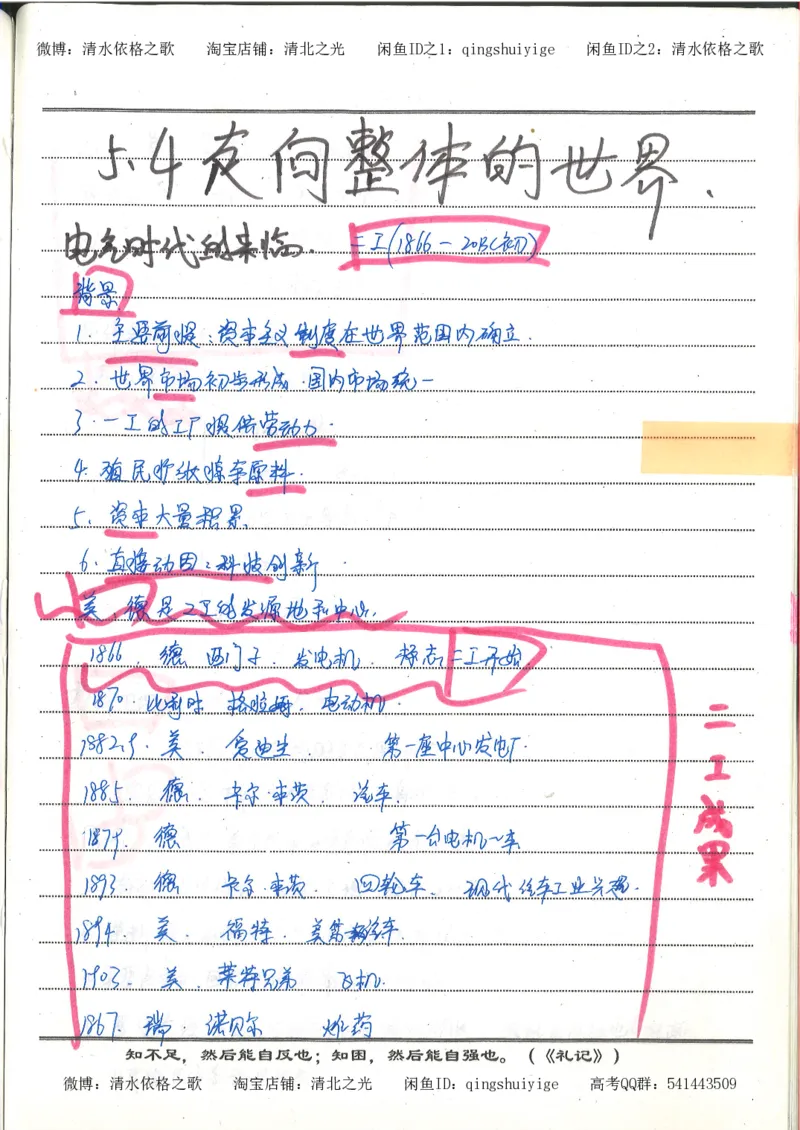 微博：清水依格之歌 淘宝店铺：清北之光 闲鱼ID之1：qingshuiyige 闲鱼ID之2：清水依格之歌
5.4 走向整体的世界.
电气时代的来临. 二工(1866－20C初)
背景
1. 主要前提：资本主义制度在世界范围内确立.
2. 世界市场初步形成.国内市场统一
3. 一工的工厂提供劳动力
4. 殖民扩张掠夺原料.
5. 资本大量积累
6. 直接动因：科技创新
美、德是二工的发源地和中心.
1866. 德 西门子. 发电机. 标志二工开始.
1870. 比利时 格拉姆. 电动机.
1882.9. 美. 爱迪生 第一座中心发电厂.
1885. 德. 卡尔·本茨. 汽车.
1879. 德 第一台电机车
1893. 德 卡尔·本茨. 四轮车. 现代汽车工业兴起.
1894. 美. 福特. 美第 汽车.
1903. 美. 莱特兄弟 飞机.
1867. 瑞 诺贝尔 炸药
二工成果
知不足，然后能自反也；知困，然后能自强也。（《礼记》）
微博：清水依格之歌 淘宝店铺：清北之光 闲鱼ID：qingshuiyige 高考QQ群：541443509